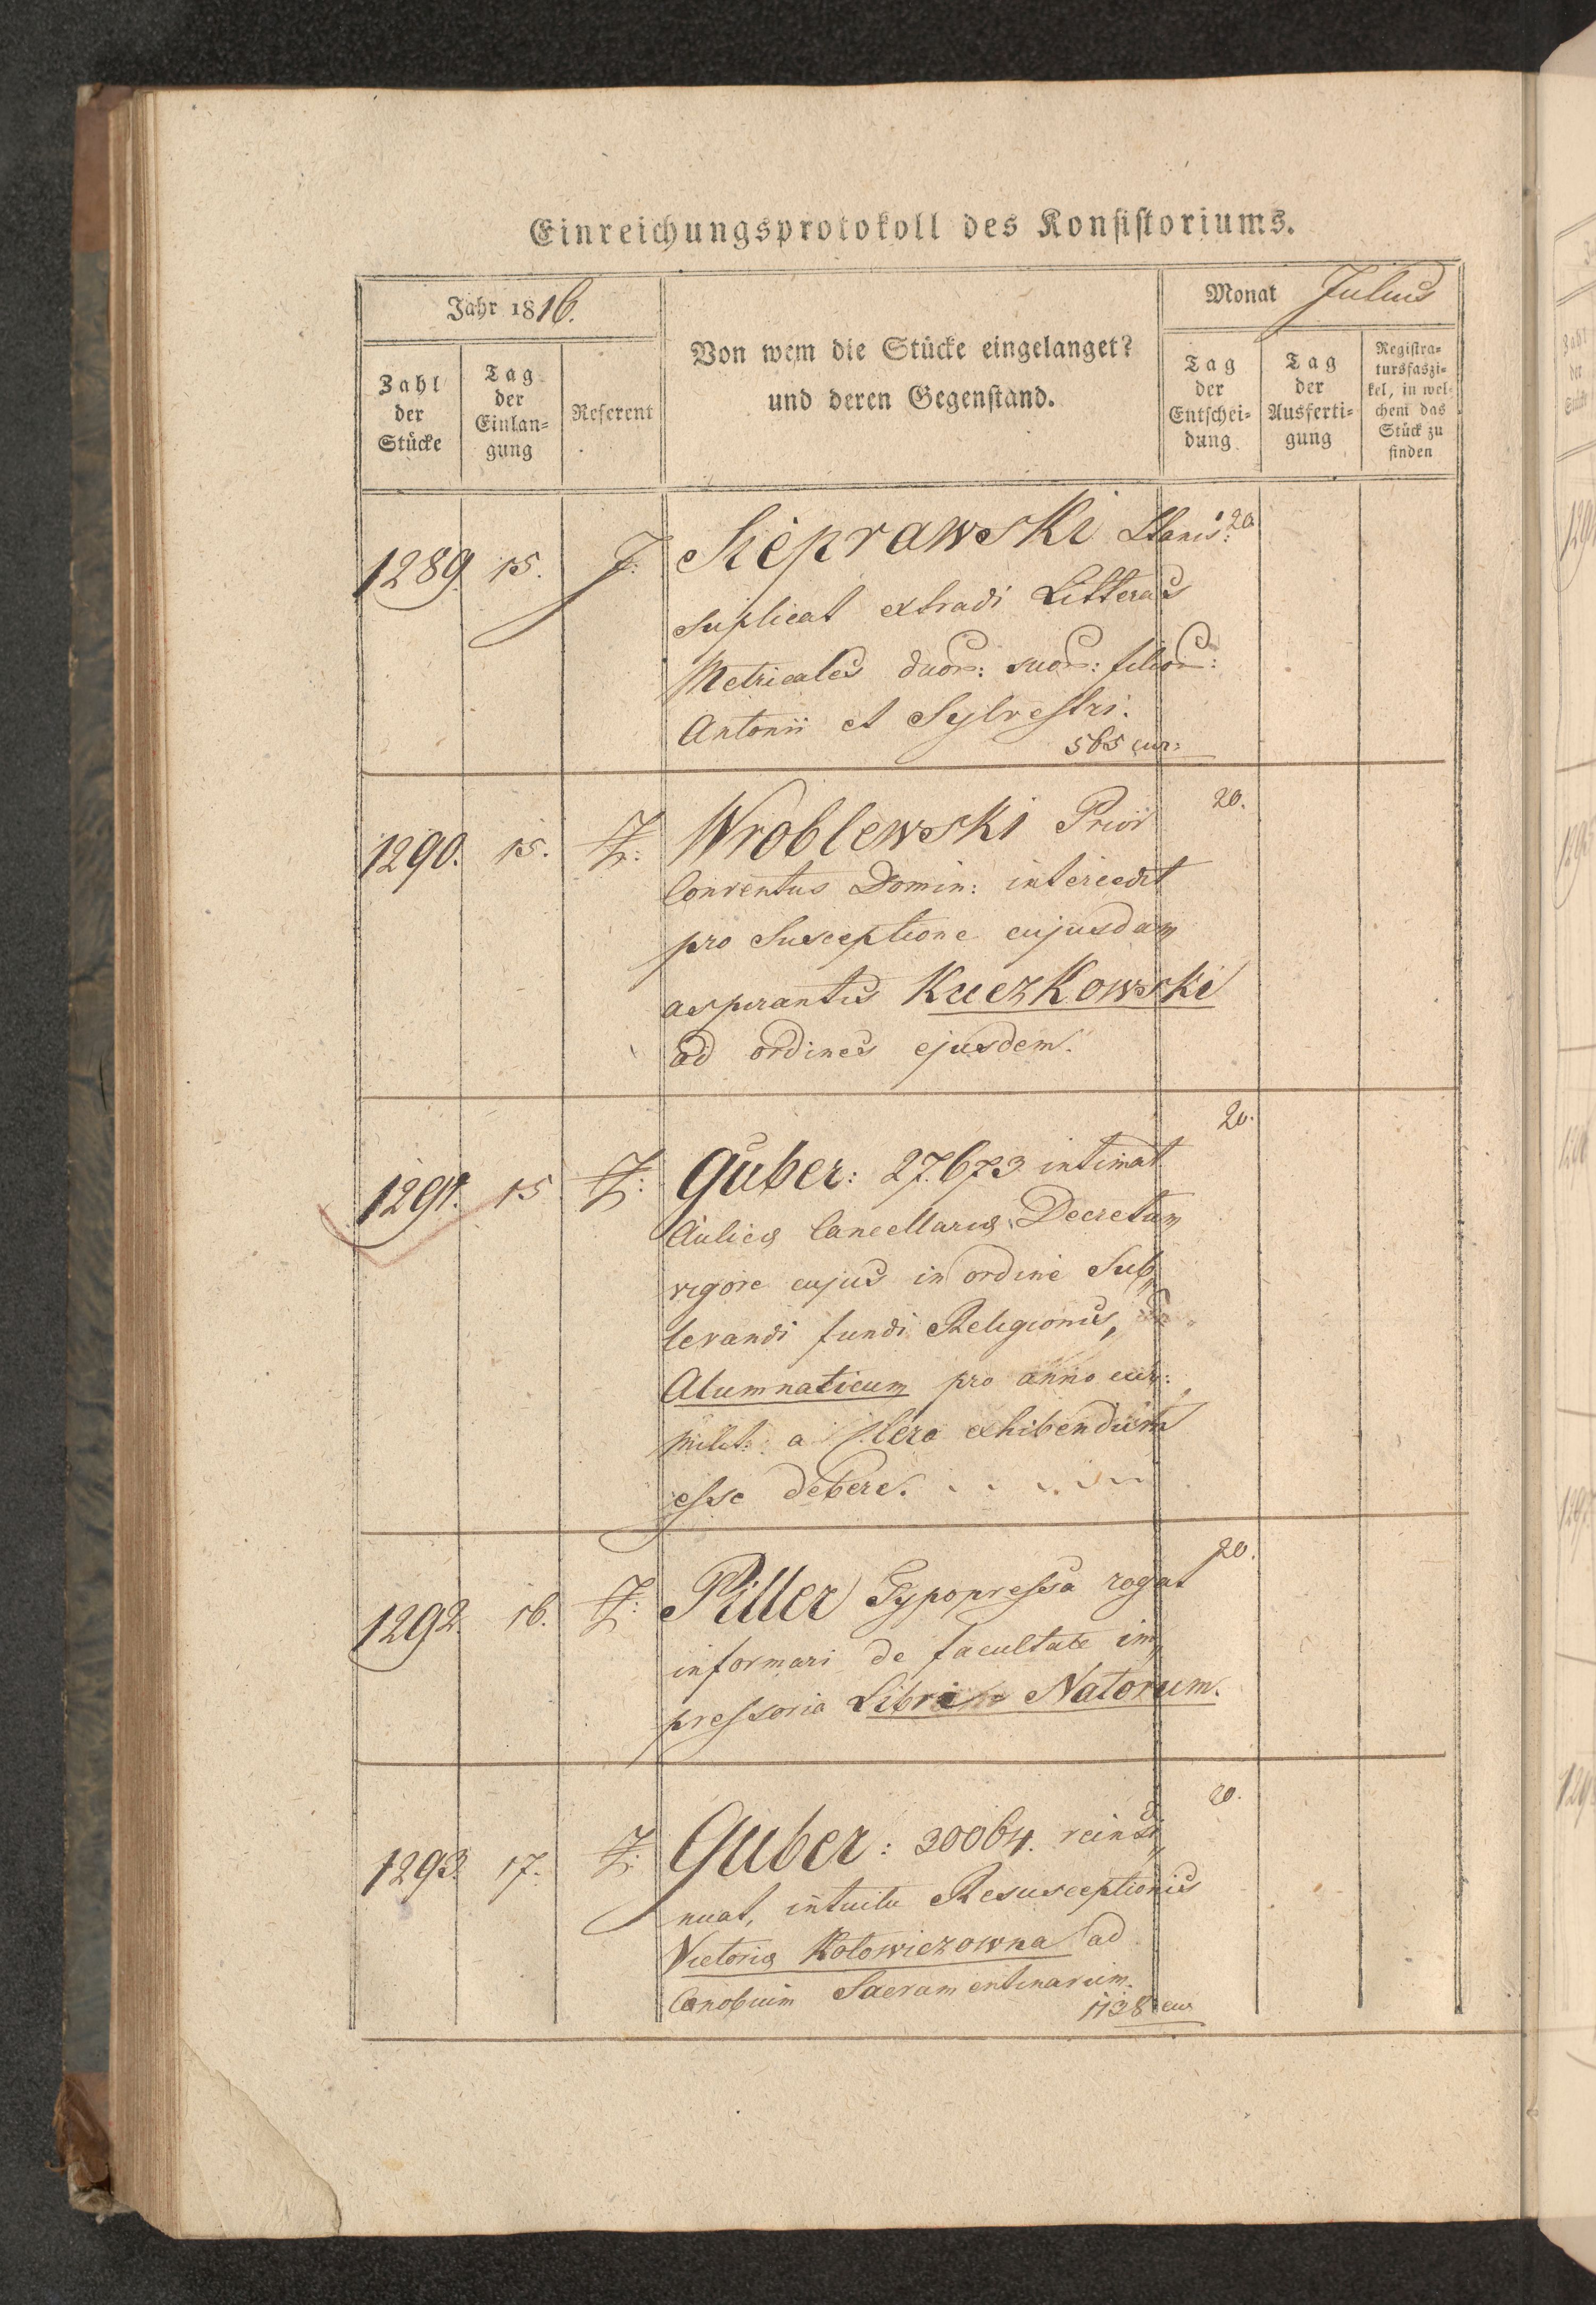 Einreichungsprotokoll des Konsistoriums.
Jahr 1816.
Monat Julius
Von wem die Stücke eingelanget?
und deren Gegenstand.
Zahl
der
Stücke
Tag
der
Einlan=
gung
Referent
Tag
der
Entschei=
dung
Tag
der
Ausferti=
gung
Registra=
tursfaszi=
kel, in wel=
chem das
Stück zu
finden
1289. 15. J: Sieprawski Stanis: 20
suplicat extradi Litteras
Metricales duor: suor: filior:
Antonii et Sylvestri.
565 cur:
1290. 15. Wroblewski Prior 20.
Conventus Domin: intercedit
pro Susceptione cujusdam
aspirantis Kuczkowski
ad ordines ejusdem.
1291. 15 Guber: 27.673 intimat 20.
Aulicę Cancellarię Decretum
vigore cujus in ordine Sub„
levandi fundi Religionis,
Alumnaticum pro anno cur:
milit: a Clero exhibendum
esse debere.
1292. 16. Piller Typopressa rogat 20.
informari de facultate im„
pressoria Libri Natorum.
1293. 17. Guber: 30064. reinsi„ 20.
nuat, intuitu Resusceptionis
Victorię Kotowiczowna ad
Cœnobium Sacramentinarum.
1138 cur